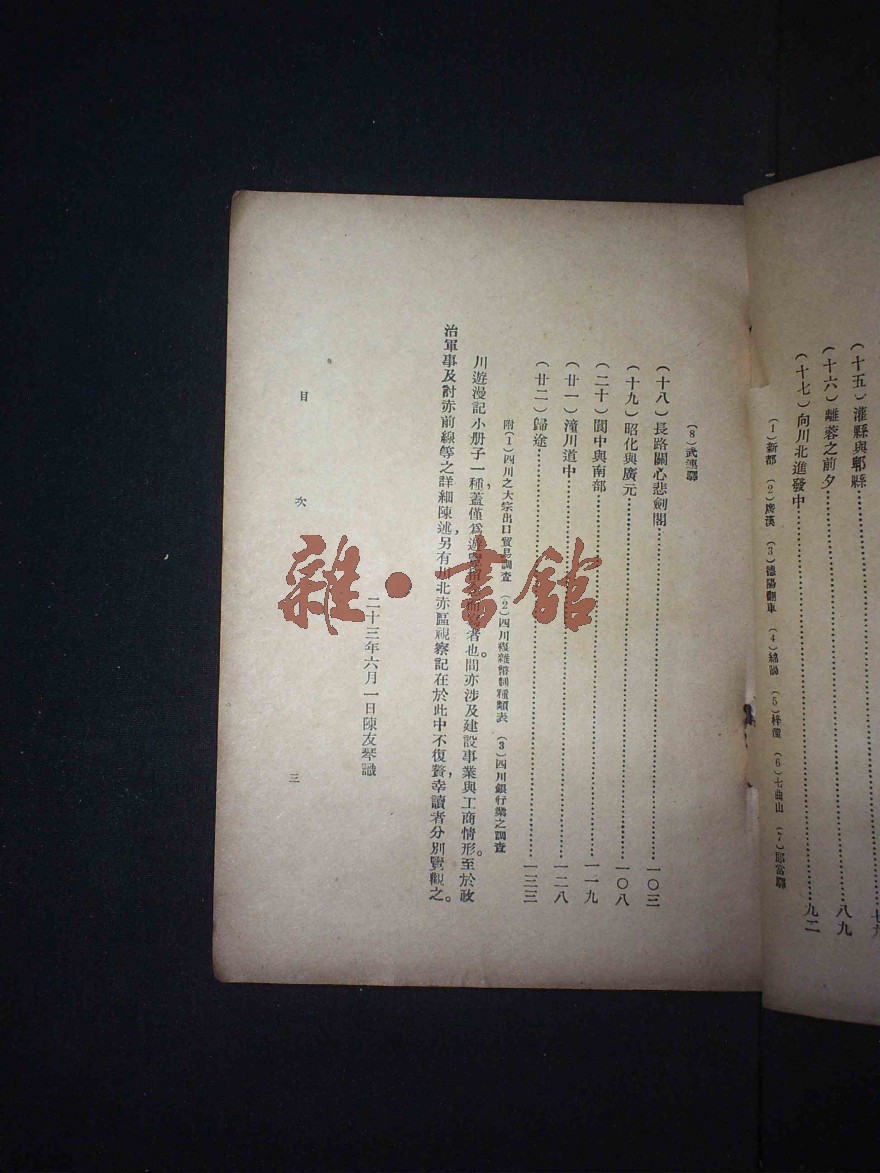 (十五)灌縣與郫縣
(十六)離蓉之前夕……八九
(十七)向川北進發中……九二
(1)新都 (2)廣漢 (3)德陽翻車 (4)綿陽 (5)梓潼 (6)七曲山 (7)郎當驛
(8)武連驛
(十八)長路關心悲劍閣……一〇三
(十九)昭化與廣元……一〇八
(二十)閬中與南部……一一九
(廿一)潼川道中……一二八
(廿二)歸途……一三三
附(1)四川之大宗出口貿易調查 (2)四川複雜幣制種類表 (3)四川銀行業之調查
川遊漫記小册子一種,蓋僅爲遊 者也。間亦涉及建設事業與工商情形。至於政
治軍事及討赤前線等之詳細陳述,另有川北赤區視察記在,於此中不復贅,幸讀者分別覽觀之。
二十三年六月一日陳友琴識
目次
三
雜·書館